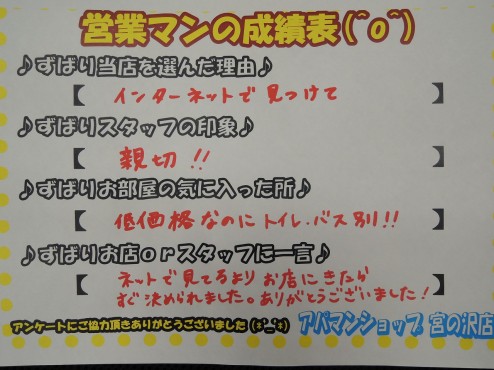 営業マンの成績表(^o^)
♪ずばり当店を選んだ理由♪
【 インターネットで見つけて 】
♪ずばりスタッフの印象♪
【 親切!! 】
♪ずばりお部屋の気に入った所♪
【 低価格なのにトイレ・バス別!! 】
♪ずばりお店orスタッフに一言♪
【 ネットで見てるよりお店にきたら
すぐ決められました。ありがとうございました! 】
アンケートにご協力頂きありがとうございました(*^_^*) アパマンショップ 宮の沢店